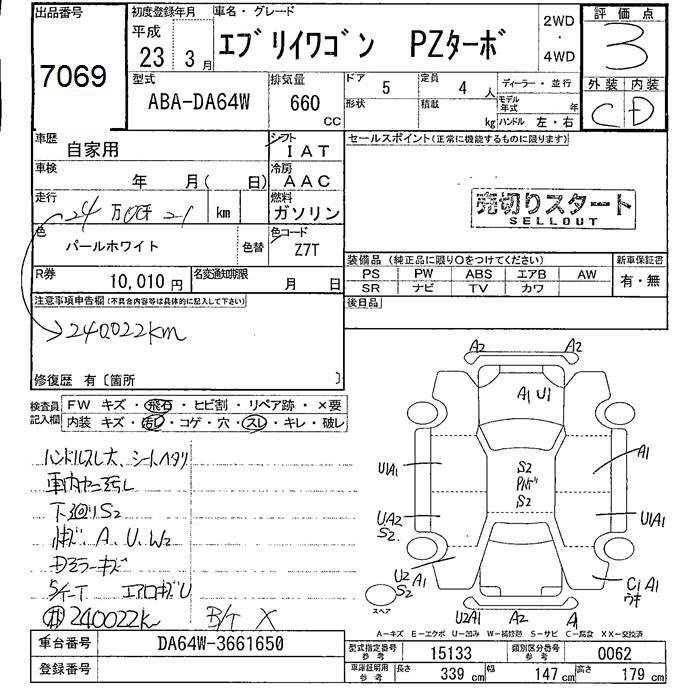 出品番号
7069
初度登録年月 車名・グレード
平成
23 3月
エブリイワゴン PZターボ
2WD
・
4WD
評価点
3
外装 内装
C D
型式
ABA-DA64W
排気量
660
CC
ドア 5
定員 4人
ディーラー・並行
形状
積載
kg
モデル年式 年
ハンドル 左・右
車歴
自家用
シフト
IAT
車検
年 月( 日)
冷房
AAC
走行
24万0千21 km
燃料
ガソリン
色
パールホワイト
色替
色コード
Z7T
R券
10,010円
名変通知期限
月 日
セールスポイント(正常に機能するものに限ります)
売切りスタート
SELLOUT
装備品(純正品に限り○をつけてください)
新車保証書
PS PW ABS エアB AW
SR ナビ TV カワ
有・無
後日品
注意事項申告欄(不具合内容等は具体的に記入して下さい)
→240022km
修復歴 有〔箇所 〕
検査員
記入欄
FW キズ・飛石・ヒビ割・リペア跡・×要
内装 キズ・汚レ・コゲ・穴・スレ・キレ・破レ
ハンドルスレ大、シートヘタリ
車内ヤニ汚レ
下廻りS2
A、U、W2
ドアミラーキズ
エアロキズU
240022K
B/T X
A2 A2
A1 U1
U1A1
S2
S2
A1
UA2
S2
U1A1
U2 A1
S2
C1 A1
ウキ
スペア
U2A1 A2 A1
A-キズ E-エクボ U-凹み W-補修跡 S-サビ C-腐食 XX-交換済
車台番号
DA64W-3661650
登録番号
型式指定番号
参考
15133
類別区分番号
参考
0062
車庫証明用
参考
長さ 339 cm
幅 147 cm
高さ 179 cm